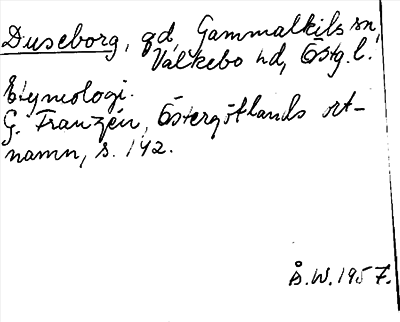 Duseborg, gd, Gammalkils sn,
Valkebo hd, Östg. l.
Etymologi.
G. Franzén, Östergötlands ort-
namn, s. 142.
Å. W. 1957.